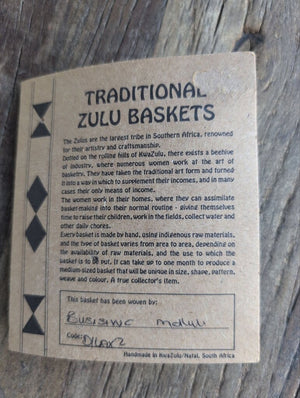 TRADITIONAL
ZULU BASKETS
The Zulus are the largest tribe in Southern Africa, renowned
for their artistry and craftsmanship.
Dotted on the rolling hills of KwaZulu, there exists a beehive
of industry, where numerous women work at the art of
basketry. They have taken the traditional art form and turned
it into a way in which to supplement their incomes, and in many
cases their only means of income.
The women work in their homes, where they can assimilate
basket-making into their normal routine - giving themselves
time to raise their children, work in the fields, collect water and
other daily chores.
Every basket is made by hand, using indigenous raw materials,
and the type of basket varies from area to area, depending on
the availability of raw materials, and the use to which the
basket is to be put. It can take up to one month to produce a
medium-sized basket that will be unique in size, shape, pattern,
weave and colour. A true collector's item.
This basket has been woven by:
Code:
Handmade in KwaZulu/Natal, South Africa